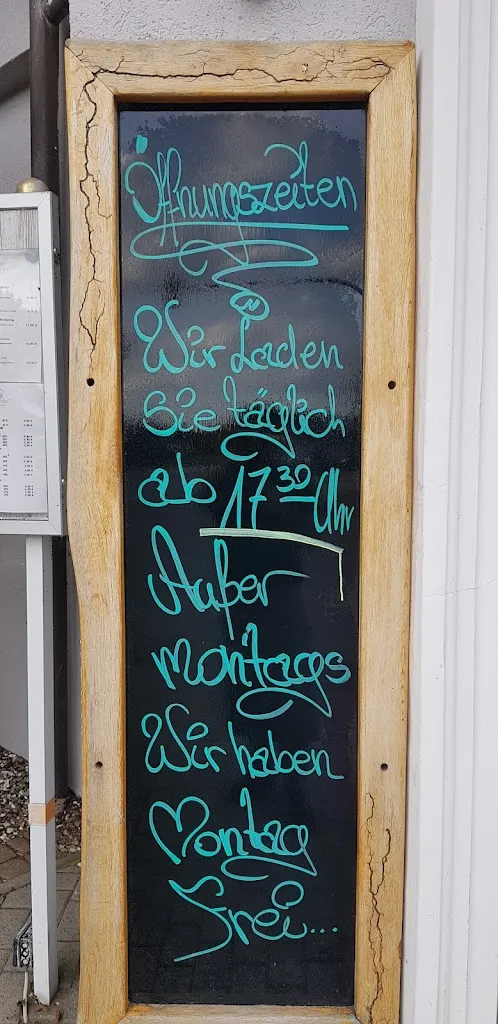 Öffnungszeiten
Wir Laden
Sie täglich
ab 17 30 Uhr
Außer
montags
Wir haben
Montag
Frei...